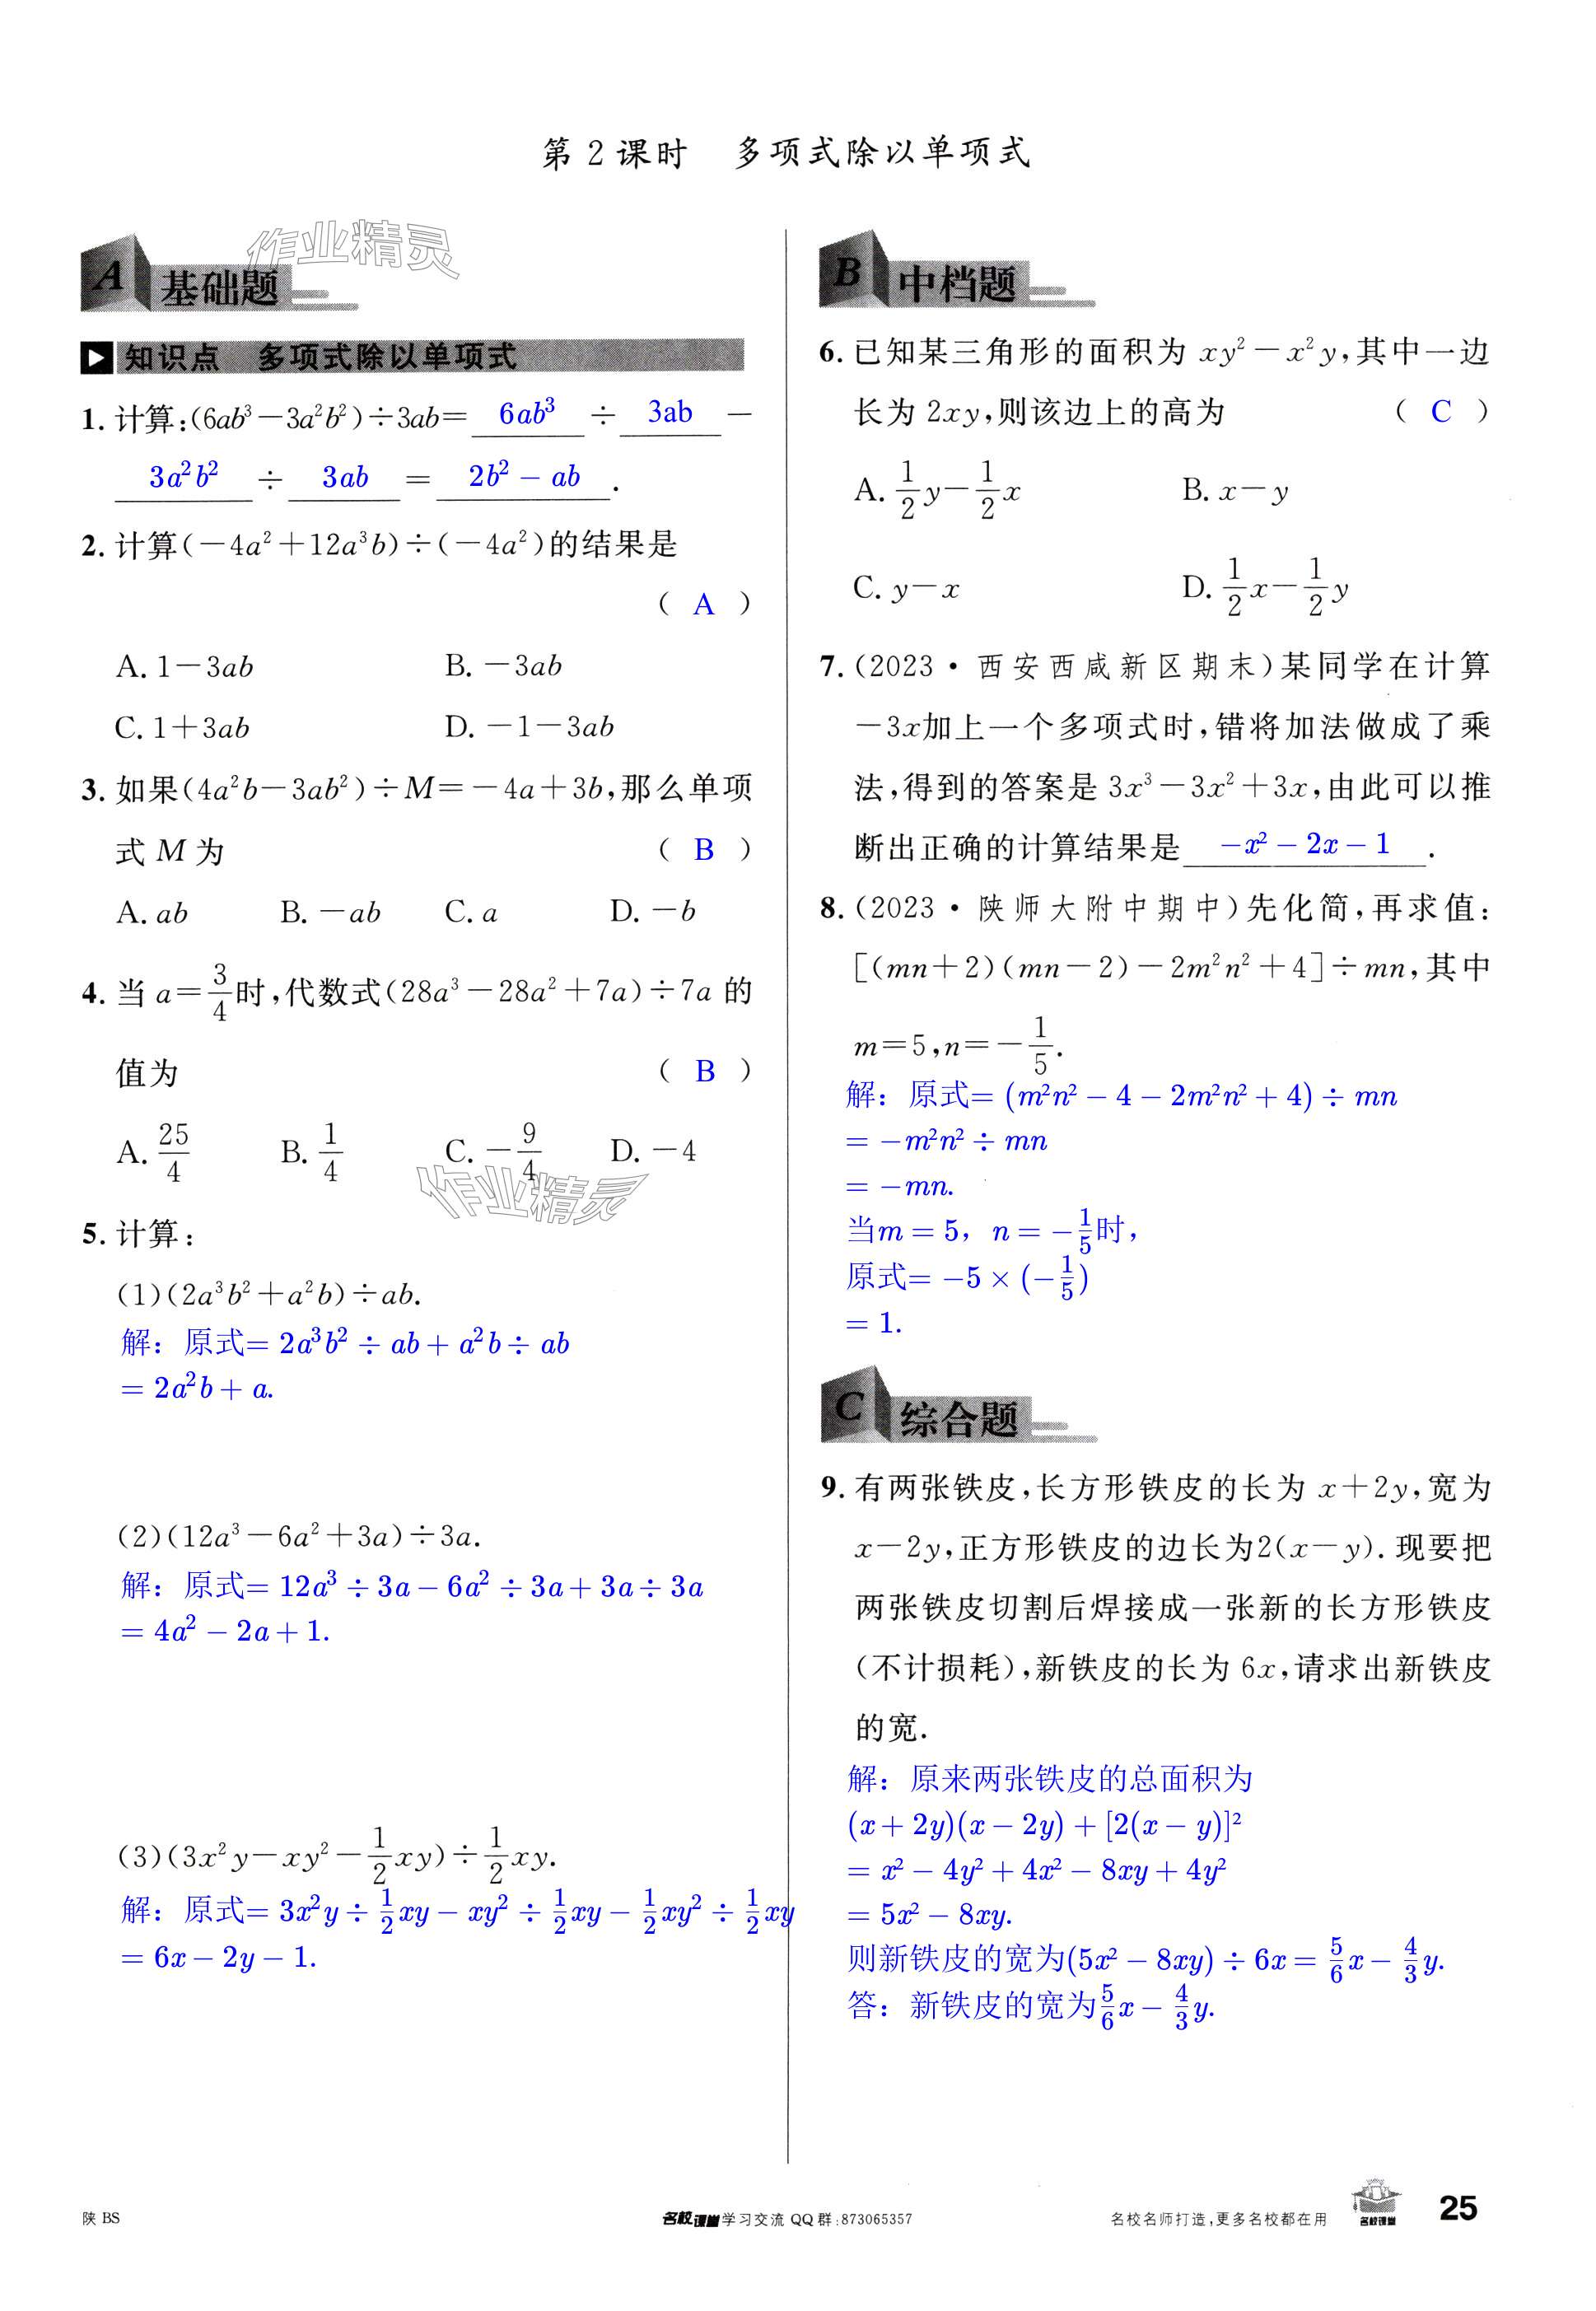 第 2 课时　多项式除以单项式
作业精灵
A 基础题
知识点　多项式除以单项式
1. 计算:(6ab³－3a²b²)÷3ab= 6ab³ ÷ 3ab －
3a²b² ÷ 3ab = 2b² － ab .
2. 计算(－4a²＋12a³b)÷(－4a²)的结果是
( A )
A. 1－3ab　B. －3ab
C. 1＋3ab　D. －1－3ab
3. 如果(4a²b－3ab²)÷M=－4a＋3b,那么单项
式 M 为 ( B )
A. ab　B. －ab　C. a　D. －b
4. 当 a=3/4时,代数式(28a³－28a²＋7a)÷7a 的
值为 ( B )
A. 25/4　B. 1/4　C. －9/4　D. －4
作业精灵
5. 计算:
(1)(2a³b²＋a²b)÷ab.
解：原式= 2a³b² ÷ ab + a²b ÷ ab
= 2a²b + a.
(2)(12a³－6a²＋3a)÷3a.
解：原式= 12a³ ÷ 3a − 6a² ÷ 3a + 3a ÷ 3a
= 4a² − 2a + 1.
(3)(3x²y－xy²－1/2xy)÷1/2xy.
解：原式= 3x²y ÷ 1/2xy − xy² ÷ 1/2xy − 1/2xy² ÷ 1/2xy
= 6x − 2y − 1.
B 中档题
6. 已知某三角形的面积为 xy²－x²y,其中一边
长为 2xy,则该边上的高为 ( C )
A. 1/2y－1/2x　B. x－y
C. y－x　D. 1/2x－1/2y
7. (2023·西安西咸新区期末)某同学在计算
－3x加上一个多项式时,错将加法做成了乘
法,得到的答案是 3x³－3x²＋3x,由此可以推
断出正确的计算结果是 −x² − 2x − 1 .
8. (2023·陕师大附中期中)先化简,再求值:
[(mn＋2)(mn－2)－2m²n²＋4]÷mn,其中
m=5,n=－1/5.
解：原式= (m²n² − 4 − 2m²n² + 4) ÷ mn
= −m²n² ÷ mn
= −mn.
当m = 5，n = −1/5时，
原式= −5 × (−1/5)
= 1.
C 综合题
9. 有两张铁皮,长方形铁皮的长为 x＋2y,宽为
x－2y,正方形铁皮的边长为2(x－y). 现要把
两张铁皮切割后焊接成一张新的长方形铁皮
(不计损耗),新铁皮的长为 6x,请求出新铁皮
的宽.
解：原来两张铁皮的总面积为
(x + 2y)(x − 2y) + [2(x − y)]²
= x² − 4y² + 4x² − 8xy + 4y²
= 5x² − 8xy.
则新铁皮的宽为(5x² − 8xy) ÷ 6x = 5/6x − 4/3y.
答：新铁皮的宽为5/6x − 4/3y.
陕 BS
名校课堂学习交流 QQ 群:873065357
名校名师打造,更多名校都在用
名校课堂
25